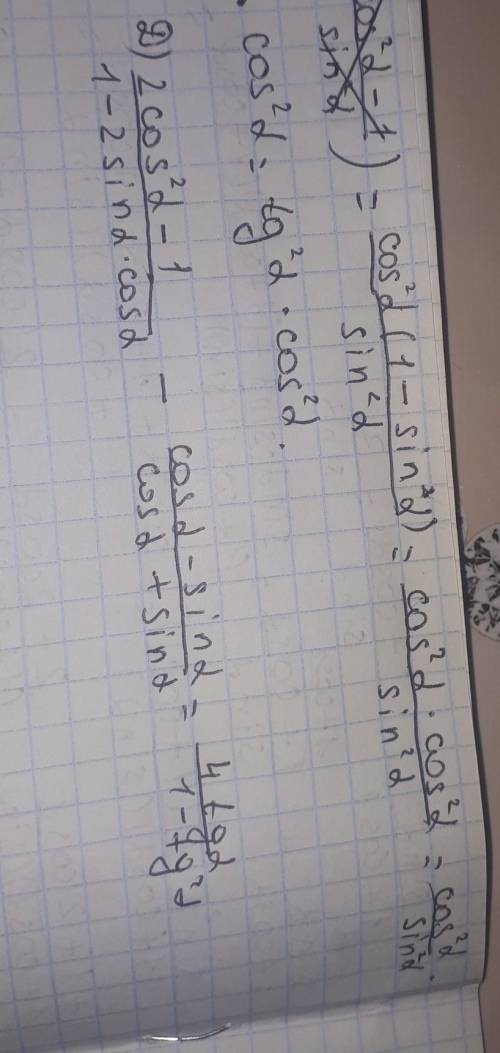 cos²α - 1 / sin α ) = cos²α (1 - sin²α) / sin²α = cos²α · cos²α / sin²α = cos²α / sin²α ·
· cos²α = tg²α · cos²α.
D) 2cos²α - 1 / 1 - 2sinα·cosα - cosα - sinα / cosα + sinα = 4tgα / 1 - tg²α